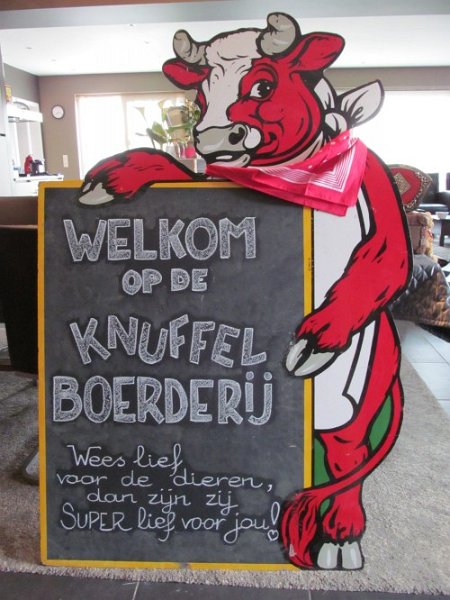 WELKOM
OP DE
KNUFFEL
BOERDERIJ
Wees lief
voor de dieren,
dan zijn zij
SUPER lief voor jou!